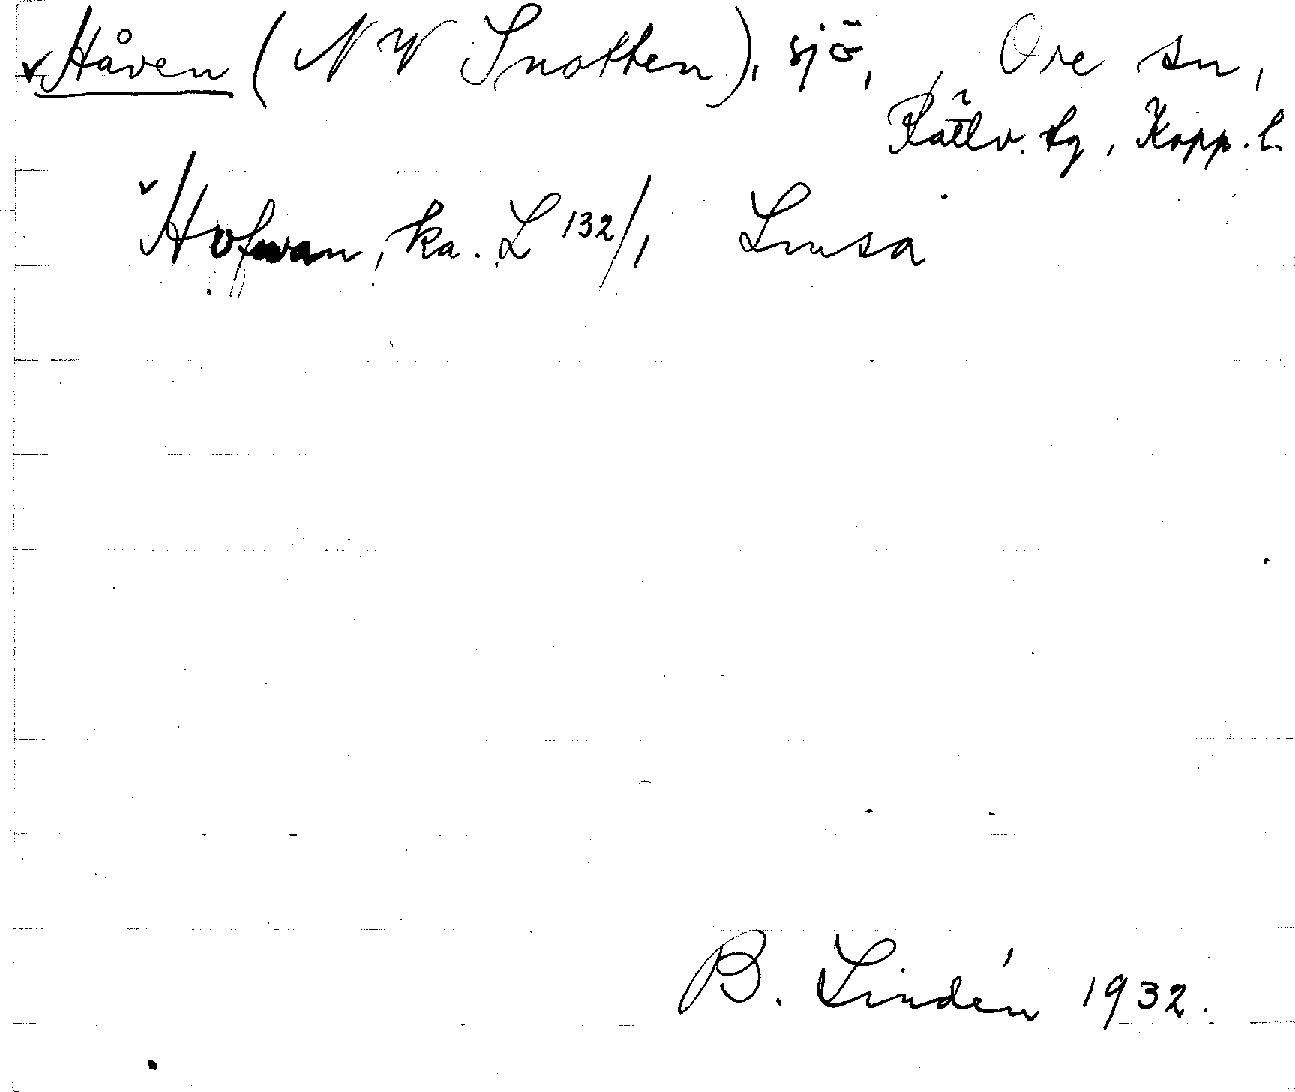 Håven (NW Snotten), sjö, Ore sn,
Rättv. tg, Kopp. l.
Hofwan, ka. L 132/1 Lima
B. Lindén 1932.